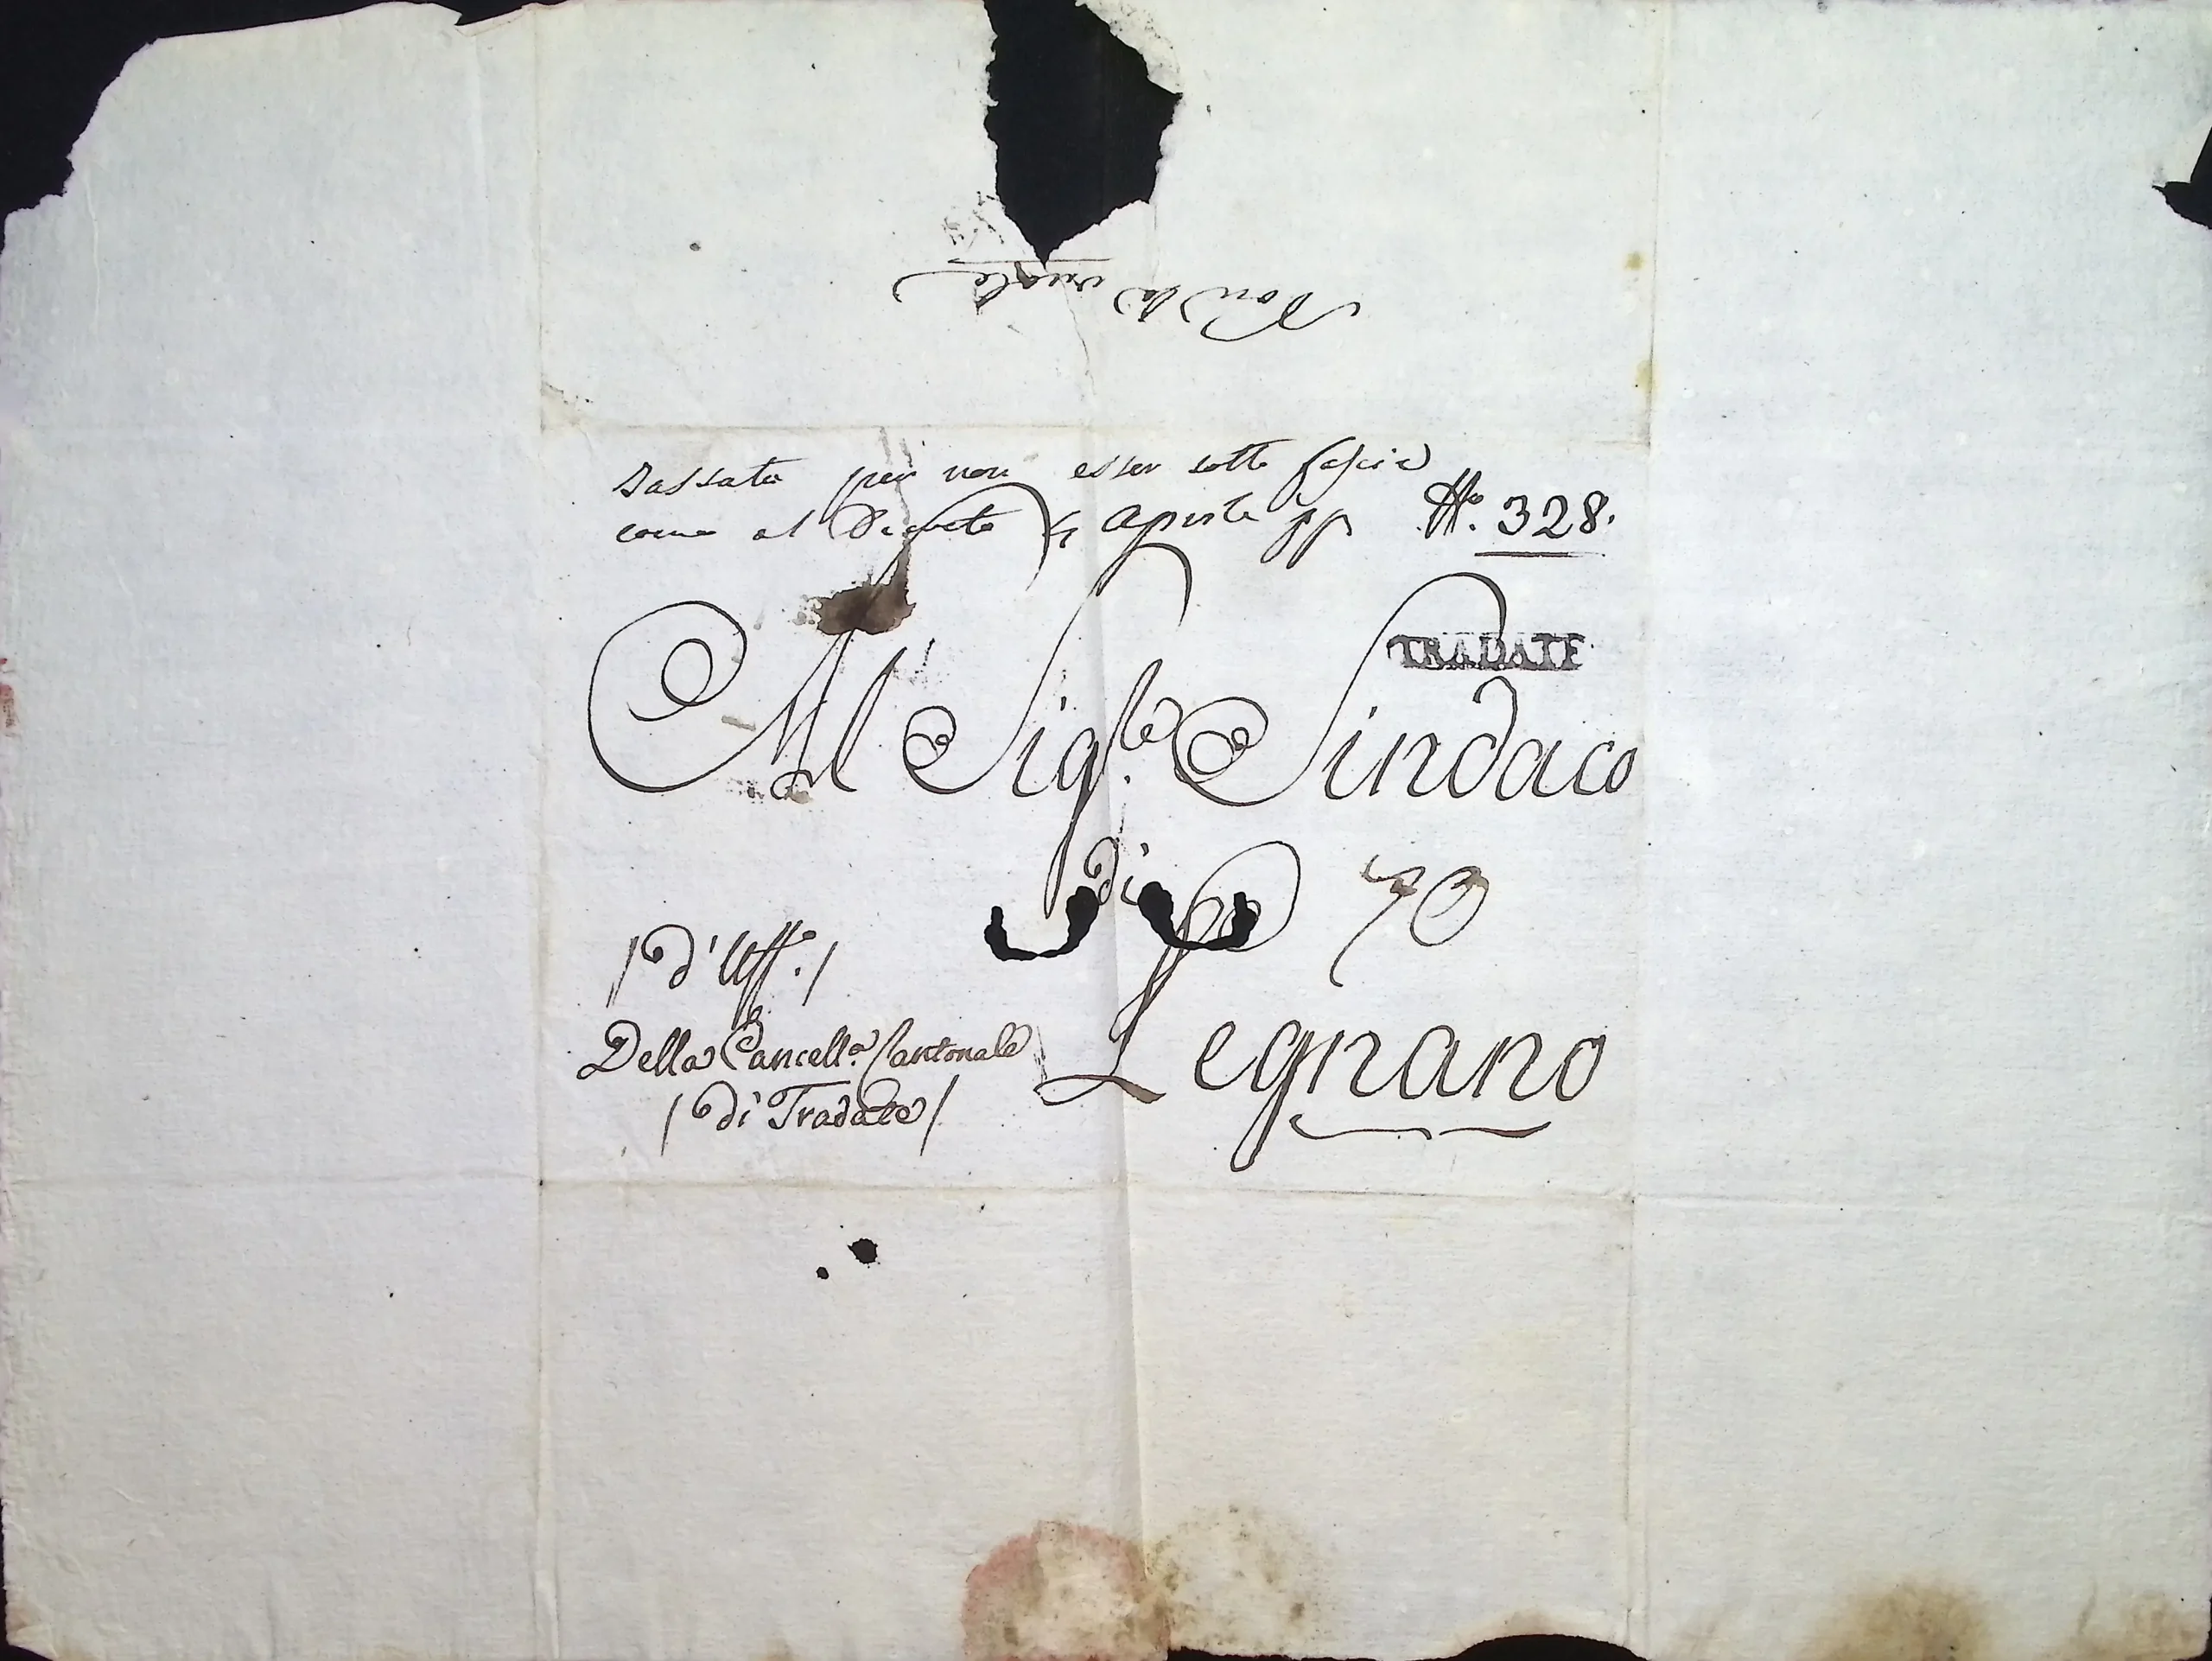 Non la vuole
Tassata per non esser sotto fascia
come al Decreto 4 Aprile pp
N.° 328.
TRADATE
Al Sig.re Sindaco
di
/ d'Uff.o /
Legnano
Della Cancell.a Cantonale
/ di Tradate /